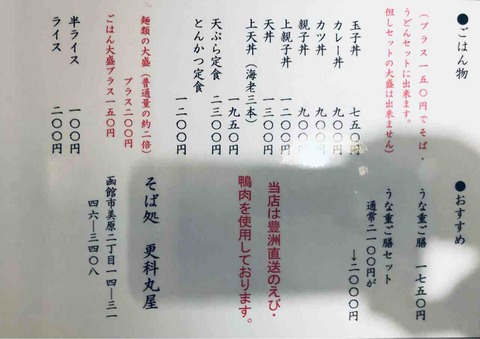 ●ごはん物
（プラス一五〇円でそば・
うどんセットに出来ます。
但しセットの大盛は出来ません）
玉子丼 七五〇円
カレー丼 九〇〇円
カツ丼 九〇〇円
親子丼 九〇〇円
上親子丼 一二〇〇円
天丼 一三〇〇円
上天丼（海老三本） 一九五〇円
天ぷら定食 二三〇〇円
とんかつ定食 一二〇〇円
麺類の大盛（普通量の約二倍）
プラス二〇〇円
ごはん大盛プラス一五〇円
半ライス 一〇〇円
ライス 二〇〇円
●おすすめ
うな重ご膳 一七五〇円
うな重ご膳セット
通常二一〇〇円が
→二〇〇〇円
当店は豊洲直送のえび・
鴨肉を使用しております。
そば処 更科丸屋
函館市美原二丁目一四―三一
四六―三四〇八